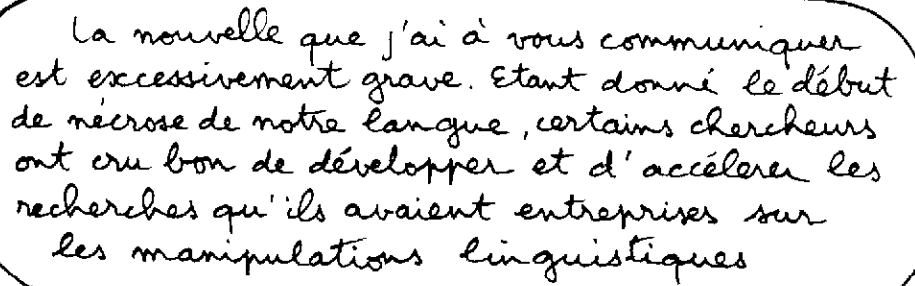 La nouvelle que j'ai à vous communiquer
est excessivement grave. Etant donné le début
de nécrose de notre langue, certains chercheurs
ont cru bon de développer et d'accélerer les
recherches qu'ils avaient entreprises sur
les manipulations linguistiques